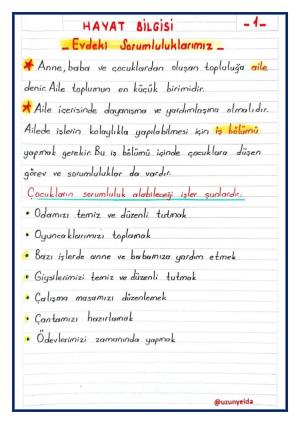 HAYAT BİLGİSİ -1-
Evdeki Sorumluluklarımız
Anne, baba ve çocuklardan oluşan topluluğa aile
denir. Aile toplumun en küçük birimidir.
Aile içerisinde dayanışma ve yardımlaşma olmalıdır.
Ailede işlerin kolaylıkla yapılabilmesi için iş bölümü
yapmak gerekir. Bu iş bölümü içinde çocuklara düşen
görev ve sorumluluklar da vardır.
Çocukların sorumluluk alabileceği işler şunlardır:
• Odamızı temiz ve düzenli tutmak
• Oyuncaklarımızı toplamak
• Bazı işlerde anne ve babamıza yardım etmek
• Giysilerimizi temiz ve düzenli tutmak
• Çalışma masamızı düzenlemek
• Çantamızı hazırlamak
• Ödevlerimizi zamanında yapmak
@uzunyelda